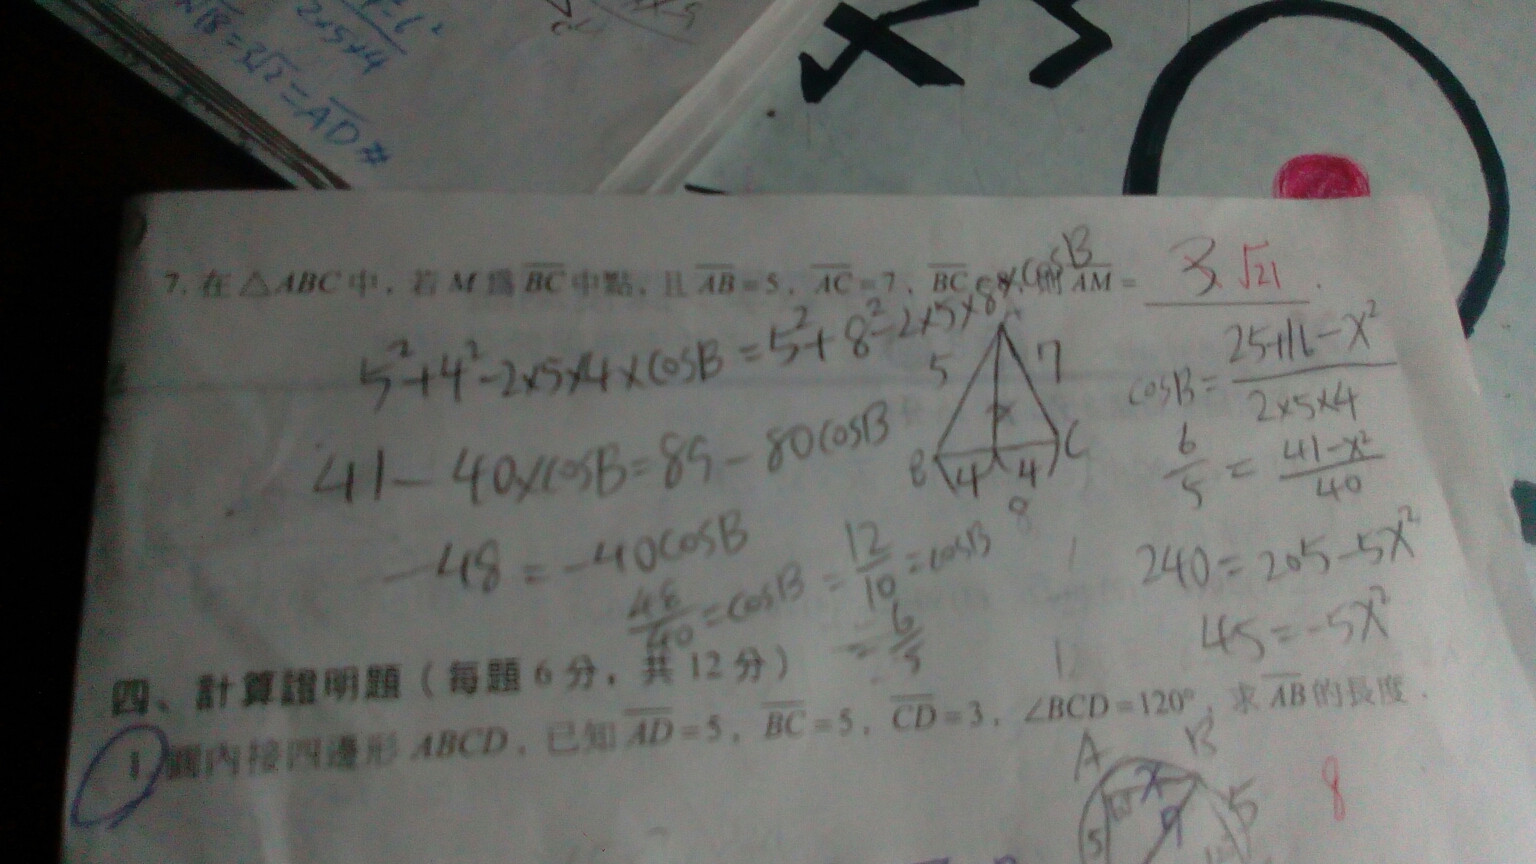 √18=3√2=AD#
2×5×4
7. 在△ABC中，若M為BC中點，且AB=5，AC=7，BC=8，則AM= 3 √21 .
5²+4²-2×5×4×cosB=5²+8²-2×5×8×cosB
5 7 x B 4 4 C 8
41-40×cosB=89-80cosB
-48=-40cosB
48/40=cosB=12/10=cosB
=6/5
cosB=25+16-x²/2×5×4
6/5=41-x²/40
240=205-5x²
45=-5x²
四、計算證明題（每題6分，共12分）
1 圓內接四邊形ABCD，已知AD=5，BC=5，CD=3，∠BCD=120°，求AB的長度．
A B
x 5 8
5